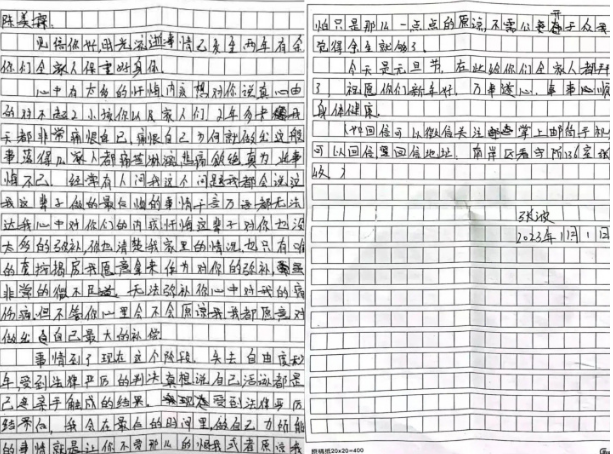 陈美霖:
见信你好时光流逝事情已发生两年有余
你们全家人保重好身体
心中有太多的忏悔内疚想对你说真心由
的对不起2小孩你以及家人们 2年多来我
天都非常痛恨自己,痛恨自己为何能做出这般
事落得几家人都痛苦悲痛欲绝真为此事
悔不已。经常有人问我这个问题我都会说这
我这辈子做的最后悔的事情千言万语都无法
达我心中对你们的内疚忏悔这辈子对你也没
太多的弥补,你也清楚我家里的情况,也只有
的房我愿意拿来作为对你的弥补,虽
非常的微不足道。无法弥补你心中对我的痛
伤痛,但不管你心里会不会原谅我我都愿意对
做出自己最大的补偿
事情到了现在这个阶段。失去自由度秒
年,受到法律严厉的判决真想说自己活该都是
己亲手触成的结果。受到法律严厉
结果但,我会在最后的时间里,做自己力所能
的事情就是让你不要那么的恨我或者原谅我
怕只是那么一点点的原谅,不需公开于众我
觉得余生就够了
今天是元旦节,在此给你们全家人都拜
了,祝愿你们新年好,万事遂心,事事心顺
身体健康。
(如回信可以微信关注掌上邮局手机
可以回信回信地址:南岸区看守所136室张
收)
张波
2023年1月1日
20×20=400